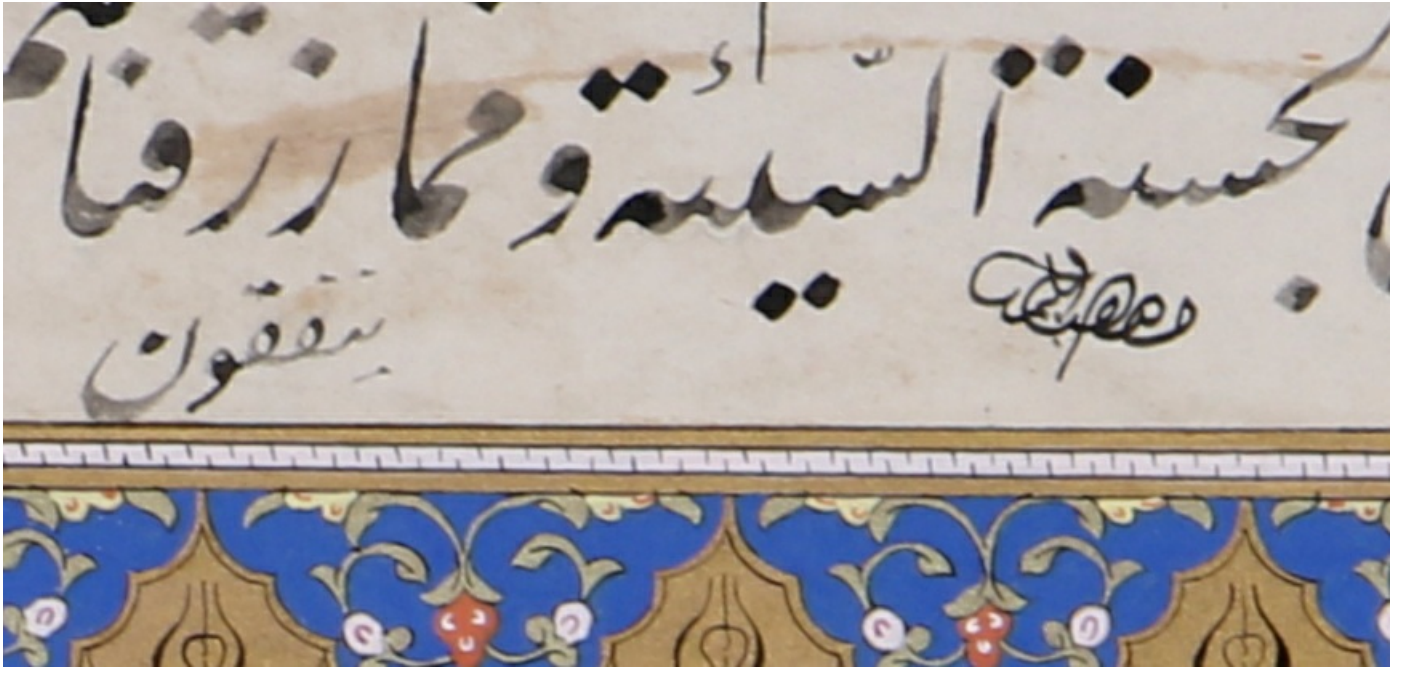 بالحسنة السّيئة و مما رزقناهم
ينفقون